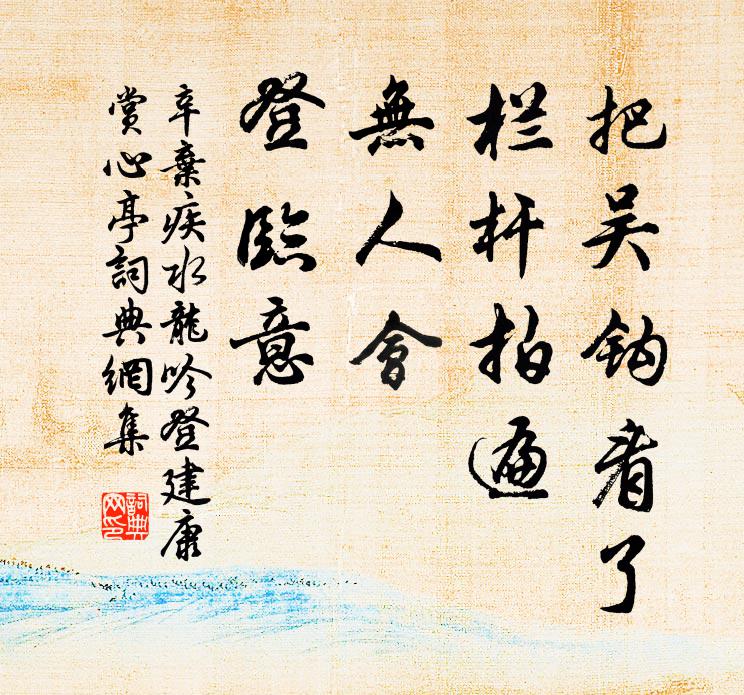 把吴钩看了
栏杆拍遍
無人會
登臨意
辛棄疾水龍吟登建康
賞心亭詞典網集
詞典網印